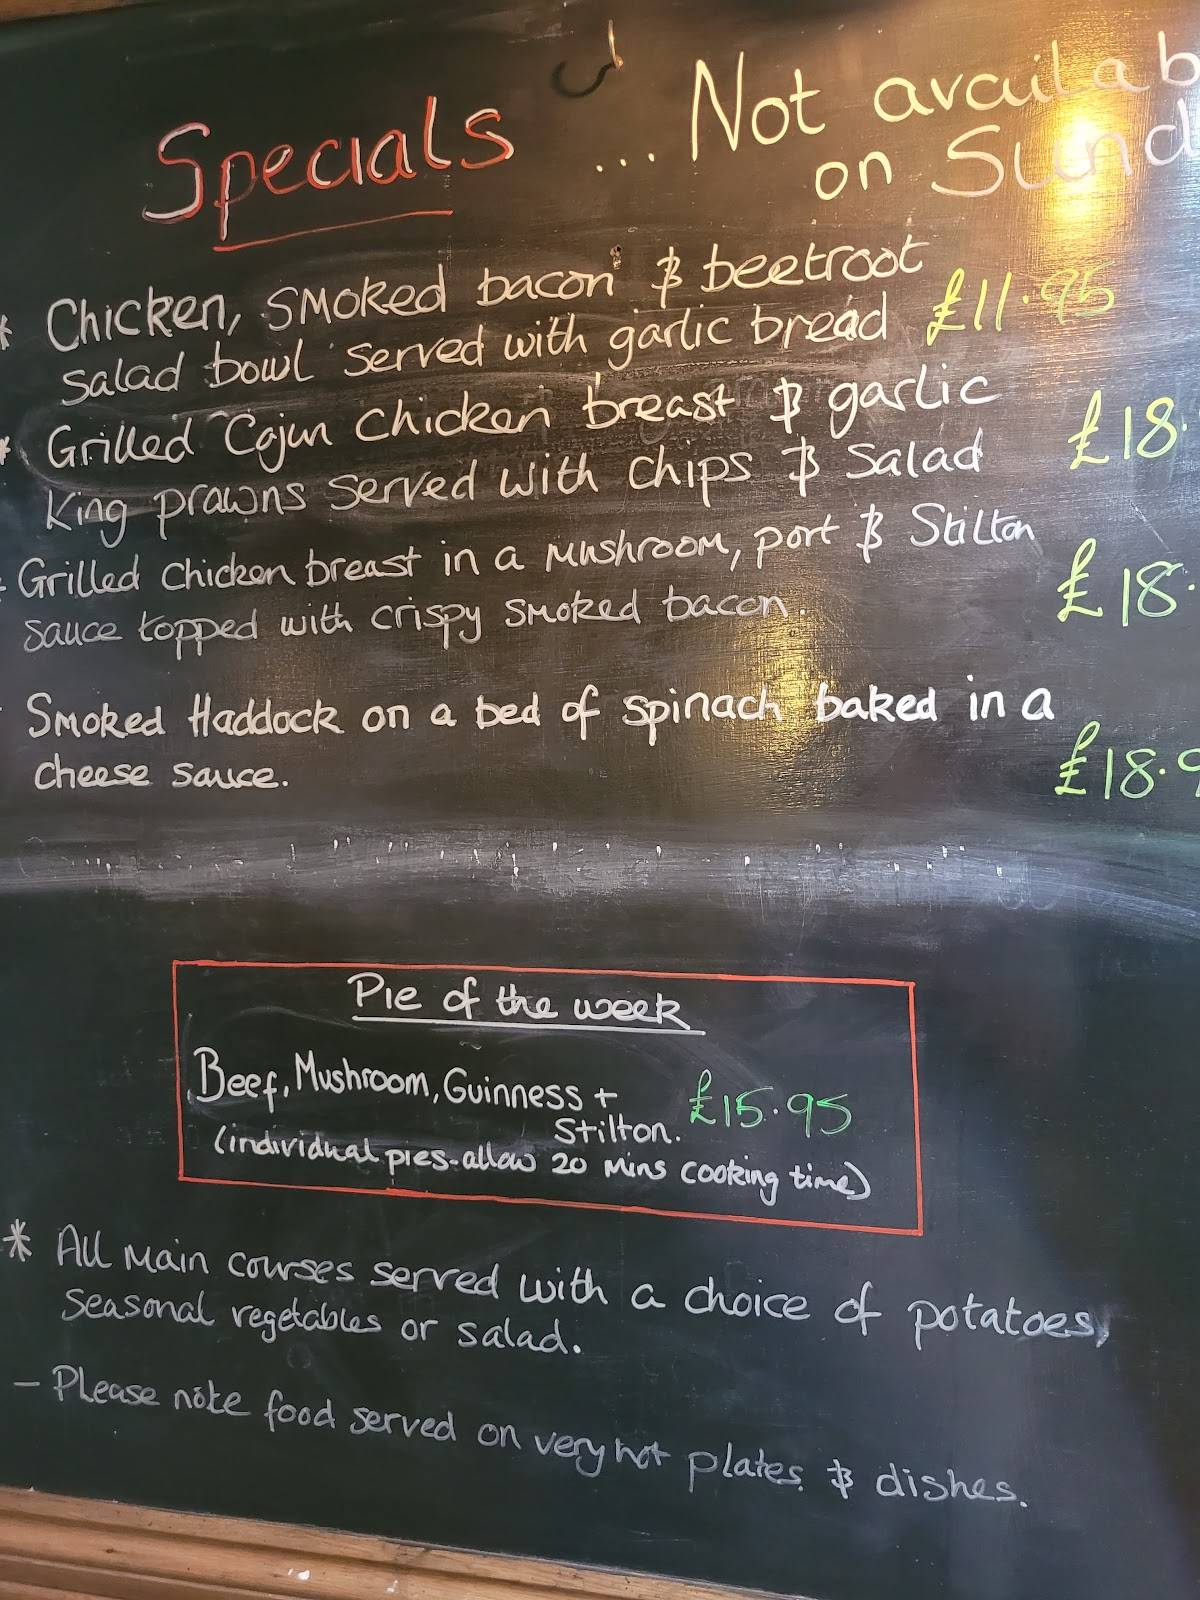 Specials ... Not availab
on Sund
* Chicken, smoked bacon & beetroot
salad bowl served with garlic bread £11.95
* Grilled Cajun chicken breast & garlic
King prawns served with chips & salad £18.
- Grilled chicken breast in a mushroom, port & Stilton
sauce topped with crispy smoked bacon. £18.
- Smoked Haddock on a bed of spinach baked in a
cheese sauce. £18.9
Pie of the week
Beef, Mushroom, Guinness +
Stilton. £15.95
(individual pies-allow 20 mins cooking time)
* All main courses served with a choice of potatoes,
seasonal vegetables or salad.
- Please note food served on very hot plates & dishes.